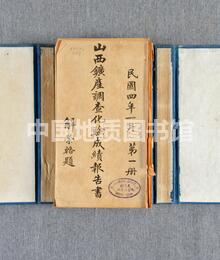 民國四年一月 第一册
山西鑛產調查化驗成績報告書
題
中国地质图书馆